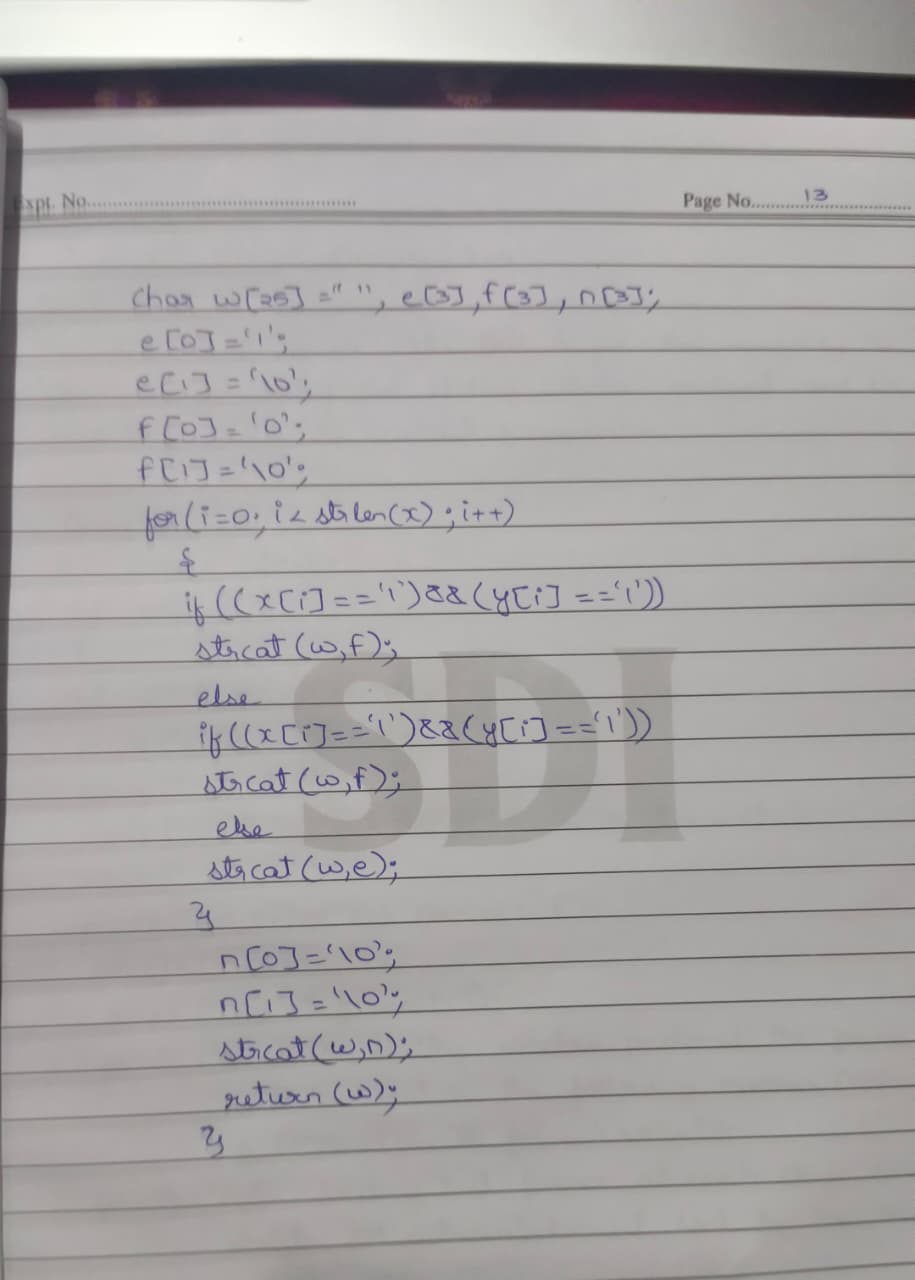 Expt. No.
Page No. 13
char w[25] =" ", e[3], f[3], n[3];
e[0]='1';
e[1] ='\0';
f[0]='0';
f[1]='\0';
for(i=0; i< strlen(x); i++)
{
if((x[i]=='1')&&(y[i]=='1'))
strcat(w,f);
else
if((x[i]=='1')&&(y[i]=='1'))
strcat(w,f);
else
strcat(w,e);
}
n[0]='\0';
n[1]='\0';
strcat(w,n);
return(w);
}
SDI